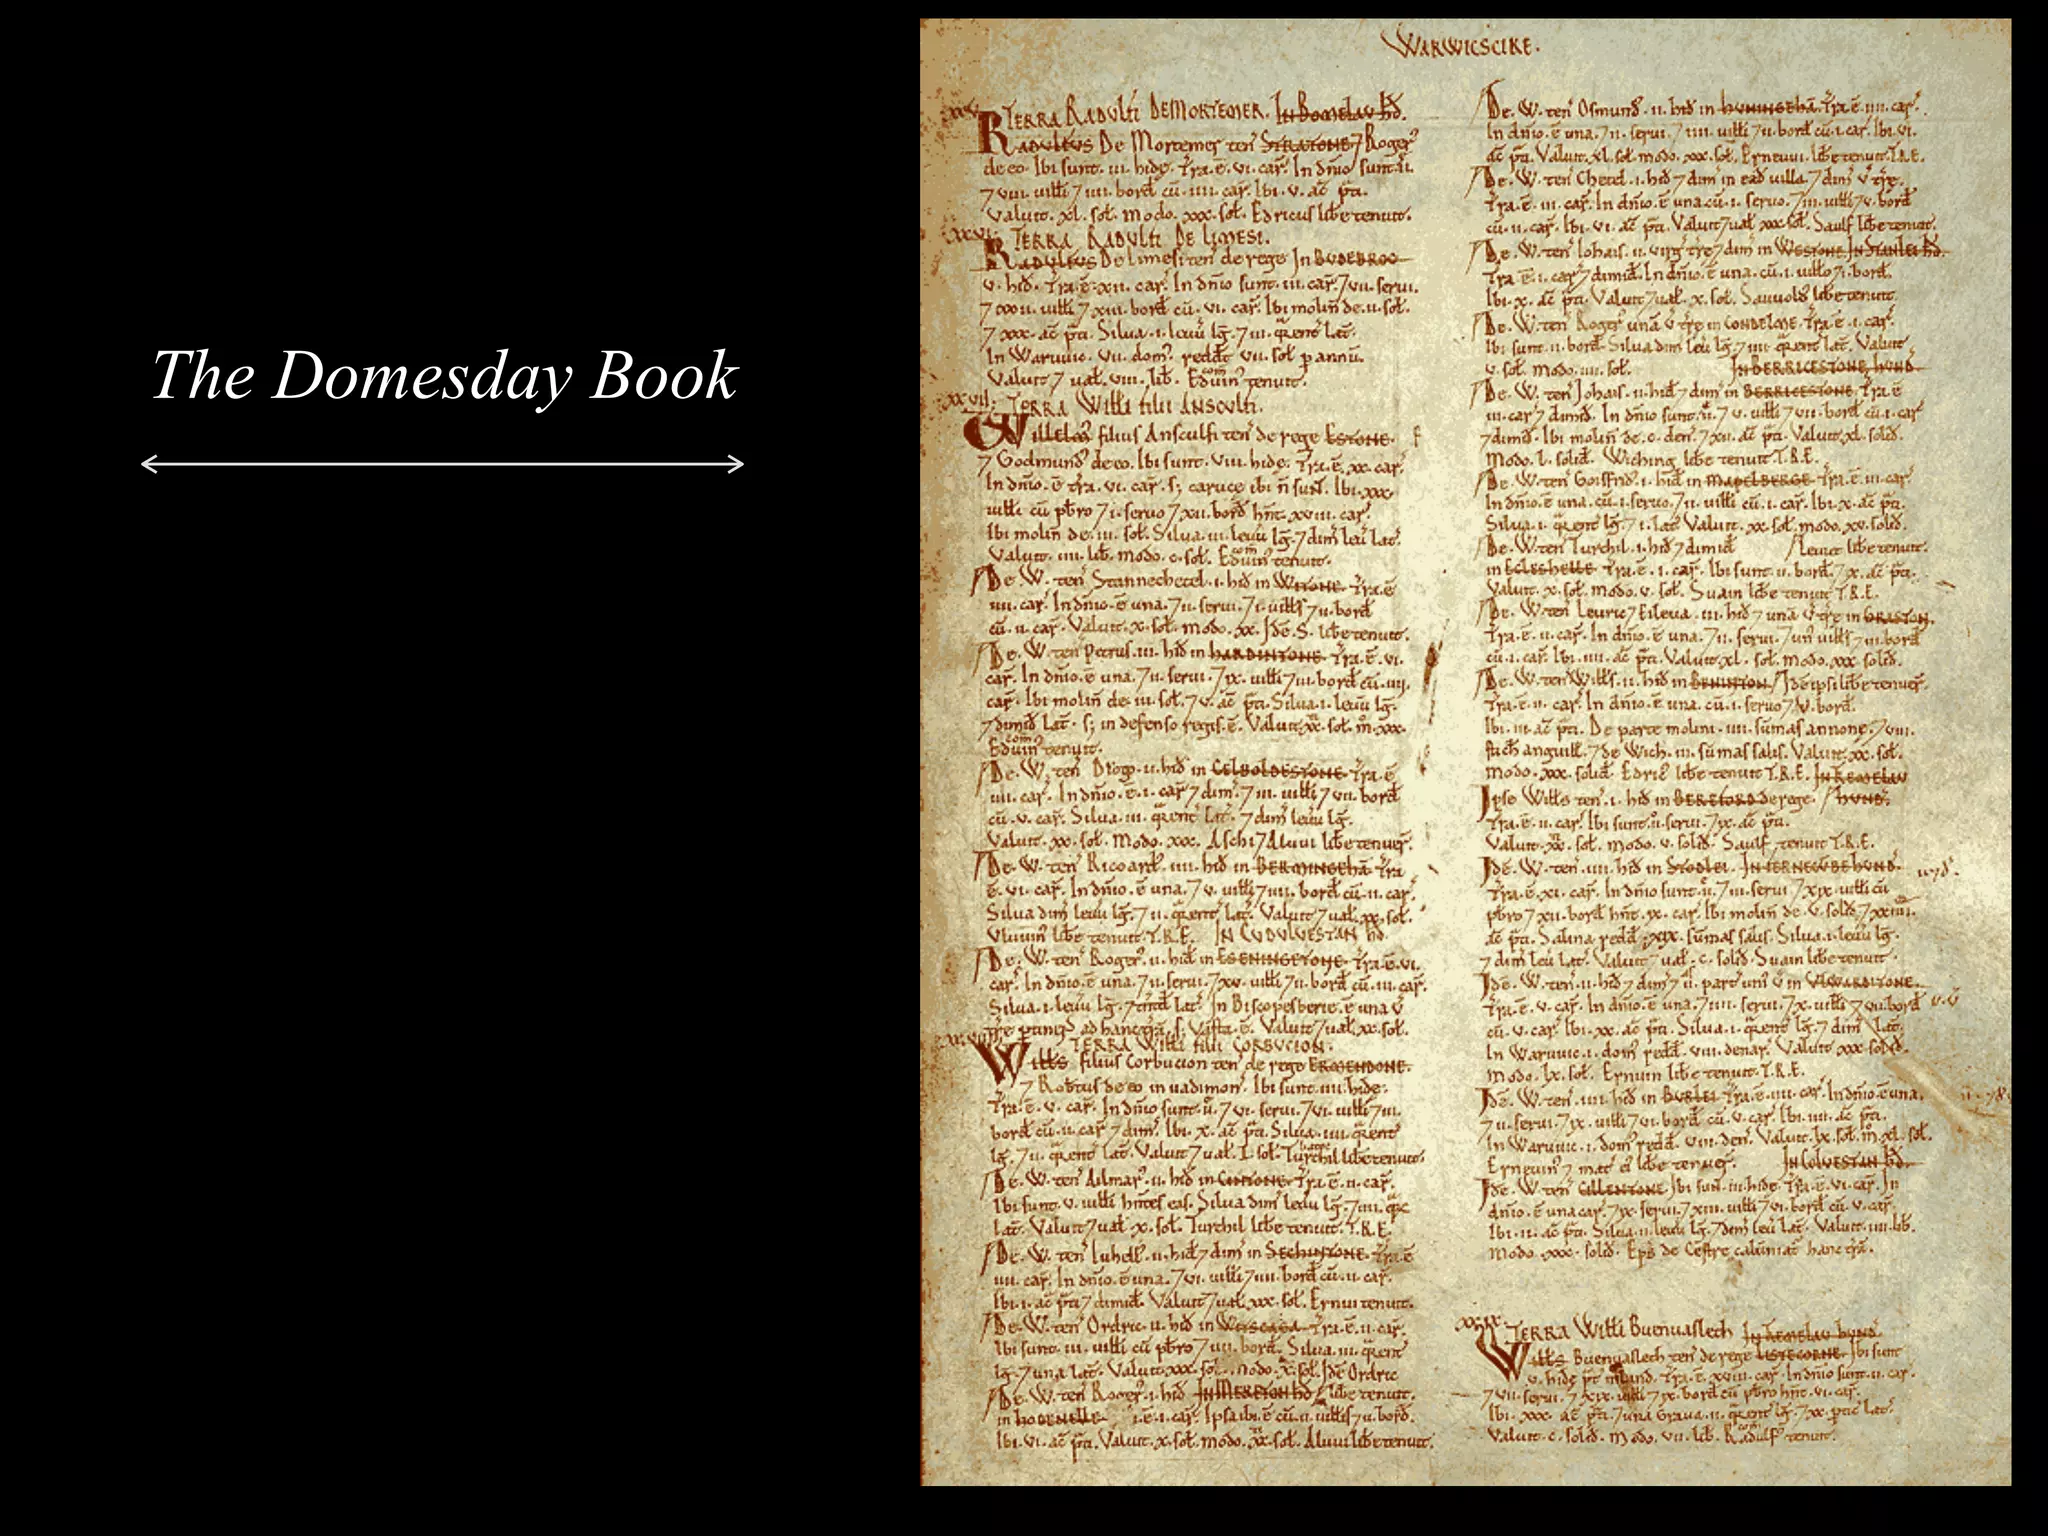 The Domesday Book
WARWICSCIRE.
TERRA RADULFI DE MORTEMER. IN BOMELAU HD.
RADULFUS De Mortemer ten STRATONE 7 Roger
de eo. Ibi sunt .iii. hidę. Tra.ē.vi. car. In dnio sunt .ii.
7 viii. uilli 7 iiii. bord cū .iiii. car. Ibi .v. ac pti.
Valuit .xl. sol. modo .xxx. sol. Edricus libe tenuit.
xxvi. TERRA RADULFI DE LIMESI.
RADULFUS De limesi ten de rege In BUDEBROC
v. hid. Tra.ē.xii. car. In dnio sunt .iii. car. 7 vii. serui.
7 uilli 7 xiii. bord cū .vi. car. Ibi molin de .ii. sol.
7 xxx. ac pti. Silua .i. leuu lg. 7 iii. qrent lat.
In Waruuic. vii. dom redd vii. sol p annū.
Valuit 7 ual. viii. lib. Eduin com tenuit.
xxvii. TERRA Willi filii ANSCULFI.
Willelm filius Ansculfi ten de rege ESTONE.
7 Godmund de eo. Ibi sunt .viii. hidę. Tra.ē.xx. car.
In dnio.ē tra .vi. car. s; carucę ibi ñ sunt. Ibi .xxx.
uilli cū pbro 7 i. seruo 7 xii. bord hnt xviii. car.
Ibi molin de .iii. sol. Silua .iii. leuu lg. 7 dim leu lat.
Valuit .iiii. lib. modo .c. sol. Eduin com tenuit.
De .W. ten Stannechetel .i. hid in WITONE. Tra.ē
iiii. car. In dnio.ē una. 7 ii. serui. 7 i. uills 7 ii. bord
cū .ii. car. Valuit .x. sol. modo .xx. Idē .S. libe tenuit.
De .W. ten Petrus .iii. hid in HARDINTONE. Tra.ē.vi.
car. In dnio.ē una. 7 ii. serui. 7 ix. uilli 7 iii. bord cū .iiij.
car. Ibi molin de .iii. sol. 7 v. ac pti. Silua .i. leuu lg.
7 dimid lat. s; in defenso regis.ē. Valuit .xx. sol. m .xxx.
Eduin com tenuit.
De .W. ten Drogo .ii. hid in CELBOLDESTONE. Tra.ē
iiii. car. In dnio.ē.i. car 7 dim. 7 iii. uilli 7 vii. bord
cū .v. car. Silua .iii. qrent lat. 7 dim leuu lg.
Valuit .xx. sol. Modo .xxx. Aschi 7 Aluui libe tenuer.
De .W. ten Ricoard .iiii. hid in BERMINGEHĀ. Tra
ē.vi. car. In dnio.ē una. 7 v. uilli 7 iiii. bord cū .ii. car.
Silua dim leuu lg. 7 ii. qrent lat. Valuit 7 ual .xx. sol.
Vluuin libe tenuit T.R.E. IN CUDULVESTAN HD.
De .W. ten Roger .ii. hid in ESENINGETONE. Tra.ē.vi.
car. In dnio.ē una. 7 ii. serui. 7 xv. uilli 7 ii. bord cū .iii. car.
Silua .i. leuu lg. 7 dimid lat. In Biscopesberie.ē una v
tre ptinens ad hanc tra. s; Vasta.ē. Valuit 7 ual .xx. sol.
TERRA Willi filii CORBUCION.
Wills filius Corbucion ten de rege ERMENDONE.
7 Rotbtus de eo in uadimon. Ibi sunt .iiii. hidę.
Tra.ē.v. car. In dnio sunt .ii. 7 vi. serui. 7 vi. uilli 7 iii.
bord cū .ii. car 7 dim. Ibi .x. ac pti. Silua .iiii. qrent
lg. 7 ii. qrent lat. Valuit 7 ual .L. sol. Turchil libe tenuit.
De .W. ten Ailmar .ii. hid in Tra.ē.ii. car.
Ibi sunt .v. uilli hntes eas. Silua dim leuu lg. 7 iiii. qr
lat. Valuit 7 ual .x. sol. Turchil libe tenuit. T.R.E.
De .W. ten Luhell .ii. hid 7 dim in SECHINTONE. Tra.ē
iiii. car. In dnio.ē una. 7 vi. uilli 7 iiii. bord cū .ii. car.
Ibi .i. ac pti 7 dimid. Valuit 7 ual .xxx. sol. Ernui tenuit.
De .W. ten Ordric .ii. hid in Tra.ē.ii. car.
Ibi sunt .iii. uilli cū pbro 7 iiii. bord. Silua .iii. qrent
lg. 7 una lat. Valuit .xxx. sol. modo .x. sol. Idē Ordric
De .W. ten Roger .i. hid IN MERETON HD. libe tenuit.
in i.ē.i. car. Ipsa ibi.ē cū .ii. uillis 7 ii. bord.
Ibi .vi. ac pti. Valuit .x. sol. modo .xx. sol. Aluui libe tenuit.
De .W. ten Osmund .ii. hid in HUNINGEHĀ. Tra.ē.iiii. car.
In dnio.ē una. 7 ii. serui. 7 iiii. uilli 7 ii. bord cū .i. car. Ibi .vi.
ac pti. Valuit .xl. sol. modo .xxx. sol. Ernuui libe tenuit. T.R.E.
De .W. ten Chetel .i. hid 7 dim in ead uilla. 7 dim v trę.
Tra.ē.iii. car. In dnio.ē una. cū .i. seruo. 7 iii. uilli 7 v. bord
cū .ii. car. Ibi .vi. ac pti. Valuit 7 ual .xxx. sol. Saulf libe tenuit.
De .W. ten Iohais .ii. uirg trę 7 dim in WESTONE. IN STANLEI HD.
Tra.ē.i. car 7 dimid. In dnio.ē una. cū .i. uillo 7 i. bord.
Ibi .x. ac pti. Valuit 7 ual .x. sol. Sauuold libe tenuit.
De .W. ten Roger unā v trę in CONDELME. Tra.ē.i. car.
Ibi sunt .ii. bord. Silua dim leu lg. 7 iiii. qrent lat. Valuit
v. sol. modo .iiii. sol. IN BERRICESTONE HUND.
De .W. ten Johais .ii. hid 7 dim in BERRICESTONE. Tra.ē
iii. car 7 dimid. In dnio sunt .ii. 7 v. uilli 7 vii. bord cū .i. car
7 dimid. Ibi molin de .c. den. 7 xii. ac pti. Valuit .xl. solid.
Modo .l. solid. Wiching libe tenuit T.R.E.
De .W. ten Goisfrid .i. hid in MAPELBERGE. Tra.ē.iii. car.
In dnio.ē una. cū .i. seruo. 7 ii. uilli cū .i. car. Ibi .x. ac pti.
Silua .i. qrent lg. 7 i. lat. Valuit .xx. sol. modo .xv. solid.
De .W. ten Turchil .i. hid 7 dimid Leuric libe tenuit.
in ECLESHELLE. Tra.ē.i. car. Ibi sunt .ii. bord. 7 x. ac pti.
Valuit .x. sol. modo .v. sol. Suain libe tenuit T.R.E.
De .W. ten Leuric 7 Eileua .iii. hid 7 una v trę in GRASTON.
Tra.ē.ii. car. In dnio.ē una. 7 ii. serui. 7 un uills 7 iii. bord
cū .i. car. Ibi .iiii. ac pti. Valuit .xl. sol. modo .xxx. solid.
De .W. ten Wills .ii. hid in BENINTON. Idē ipsi libe tenuer.
Tra.ē.ii. car. In dnio.ē una. cū .i. seruo 7 v. bord.
Ibi .iii. ac pti. De parte molini .iiii. sūmas annonę. 7 viii.
stich anguill. 7 de Wich .iii. sūmas salis. Valuit .xx. sol.
modo .xxx. solid. Edric libe tenuit T.R.E. IN REMELAU
Ipse Wills ten .i. hid in BEREFORD de rege. HUND.
Tra.ē.ii. car. Ibi sunt .ii. serui. 7 ix. ac pti.
Valuit .xx. sol. modo .v. solid. Saulf tenuit T.R.E.
Idē .W. ten .iiii. hid in STODLEI. IN FERNECUBE HUND.
Tra.ē.xi. car. In dnio sunt .ii. 7 iii. serui 7 xix. uilli cū
pbro 7 xii. bord hnt .ix. car. Ibi molin de .v. solid. 7 xxiiii.
ac pti. Salina redd .xix. sūmas salis. Silua .i. leuu lg.
7 dim leu lat. Valuit 7 ual .c. solid. Suain libe tenuit.
Idē .W. ten .ii. hid 7 dim 7 ii. part uni v in VLWARDITONE.
Tra.ē.v. car. In dnio.ē una. 7 iiii. serui. 7 x. uilli 7 vii. bord
cū .v. car. Ibi .xx. ac pti. Silua .i. qrent lg. 7 dim lat.
In Waruuic .i. dom redd .viii. denar. Valuit .xxx. solid.
modo .lx. sol. Ernuin libe tenuit. T.R.E.
Idē .W. ten .iiii. hid in BURLEI. Tra.ē.iiii. car. In dnio.ē una.
7 ii. serui. 7 ix. uilli 7 vi. bord cū .v. car. Ibi .iiii. ac pti.
In Waruuic .i. dom redd .viii. den. Valuit .lx. sol. m .xl. sol.
Ernuin 7 mat ei libe tenuer. IN COLVESTAN HD.
Idē .W. ten CILLENTONE. Ibi sunt .iii. hidę. Tra.ē.vi. car. In
dnio.ē una car. 7 ix. serui. 7 xiii. uilli 7 vi. bord cū .v. car.
Ibi .ii. ac pti. Silua .ii. leuu lg. 7 dim leu lat. Valuit .iiii. lib.
modo .xxx. solid. Eps de Cestre calumniat hanc tra.
xxix. TERRA Willi Buenuaslech IN REMELAU HUND.
Wills Buenuaslech ten de rege LISTECORNE. Ibi sunt
v. hidę Tra.ē.xviii. car. In dnio sunt .ii. car.
7 vii. serui. 7 xix. uilli 7 ix. bord cū pbro hnt .vi. car.
Ibi .xxx. ac pti. 7 una Graua .ii. qrent lg. 7 xx. ptic lat.
Valuit .c. solid. Modo .vii. lib. Radulf com tenuit.